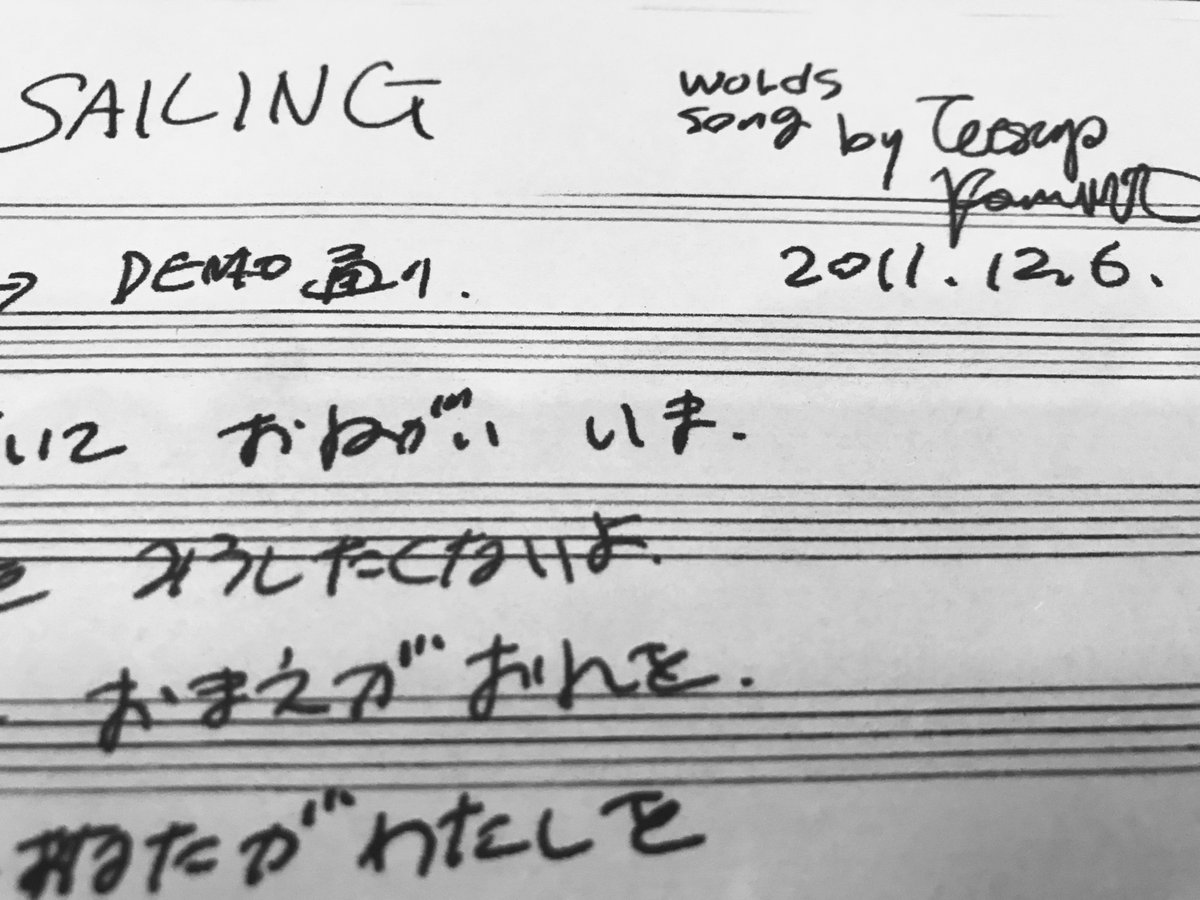 SAILING
wolds
song by Tetsuya
→ DEMO通り. 2011.12.6.
いに おねがい いま.
を みうしたくないよ.
おまえが おれを.
あなたが わたしを